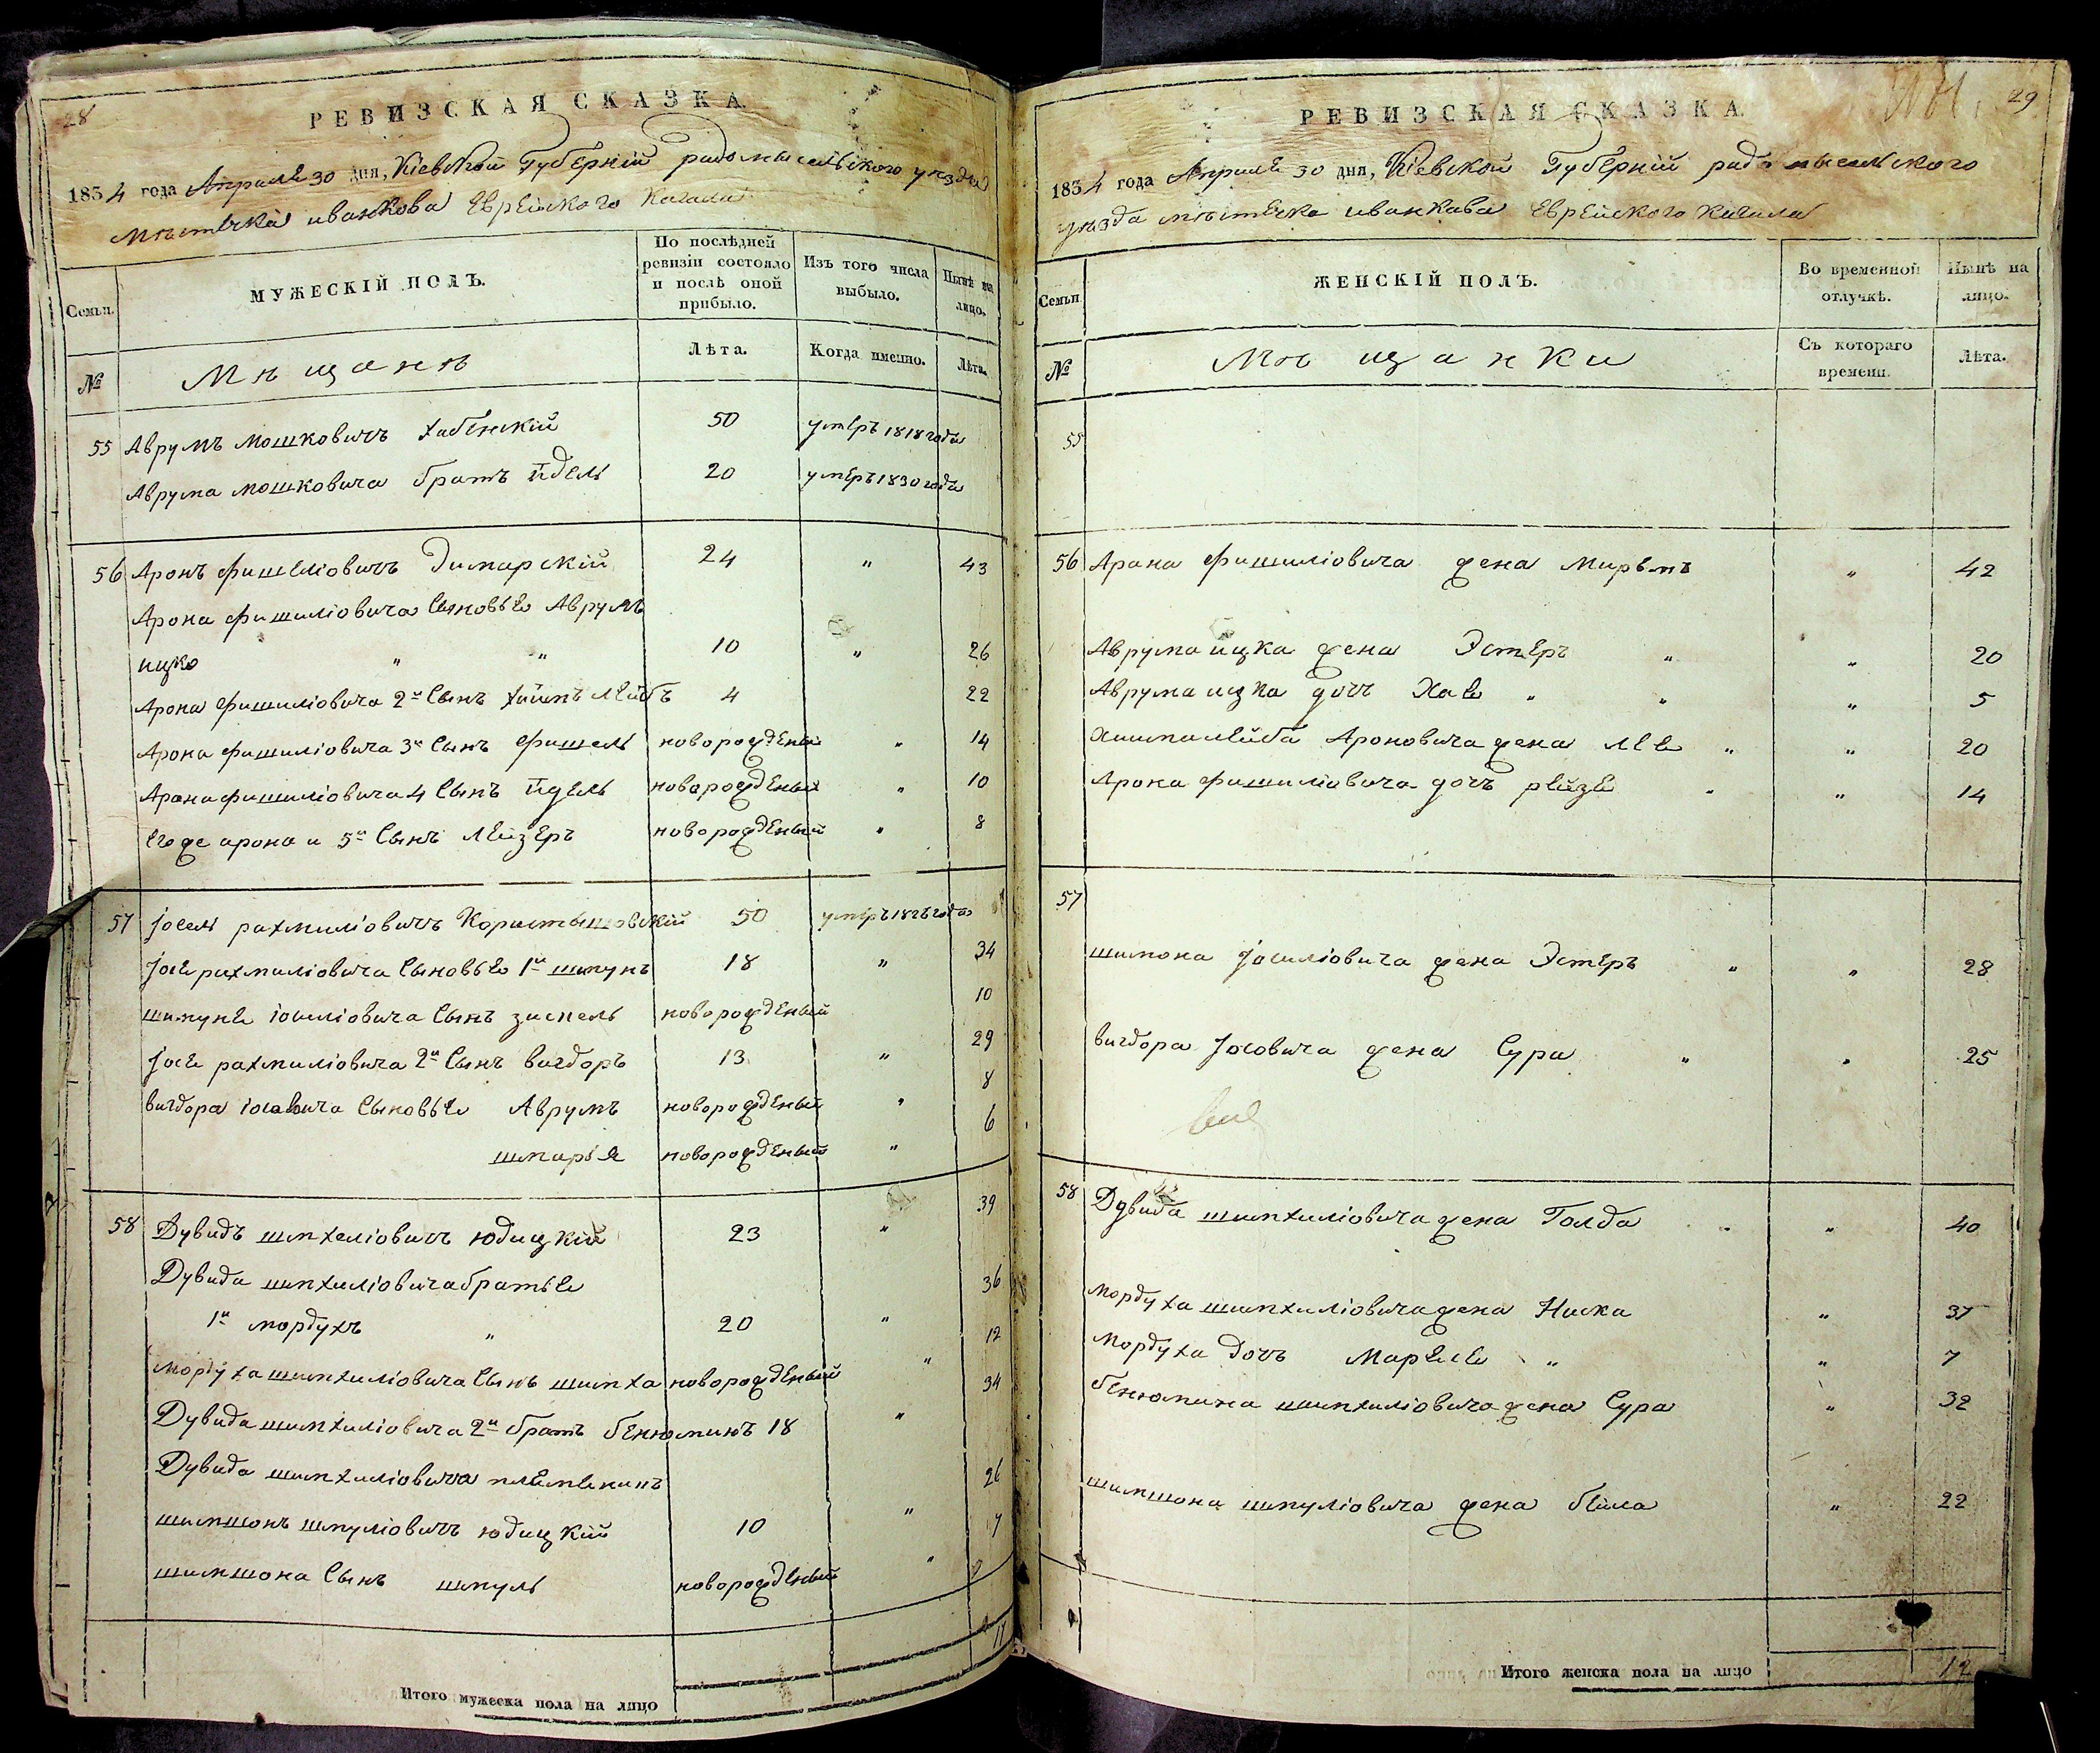 28
РЕВИЗСКАЯ СКАЗКА.
1834 года Апреля 30 дня, Кіевской Губерніи радомысльского уезда
мѣстечка иванкова Еврейского Кагала
Семьи.
МУЖЕСКІЙ ПОЛЪ.
По послѣдней ревизіи состояло и послѣ оной прибыло.
Изъ того числа выбыло.
Нынѣ на лицо.
№
Мѣщане
Лѣта.
Когда именно.
Лѣта.
55 Аврумъ мошковичъ хабенский 50 умеръ 1818 года
Аврума мошковича братъ йдель 20 умеръ 1830 года
56 Аронъ фишеліовичъ Димарскій 24 " 43
Арона фишиліовича сыновье Аврумъ
ицко " " 10 " 26
Арона фишиліовича 2й сынъ хаимъ лейбъ 4 22
Арона фишиліовича 3й сынъ фишель новорожденый " 14
Арона фишиліовича 4 сынъ йдель новорожденый " 10
егоже арона и 5й сынъ лейзеръ новорожденый " 8
57 Іосель рахмиліовичъ Коростышовскій 50 умеръ 1826 года
Іосе рахмиліовича сыновье 1й шмунъ 18 " 34
шимуне іосиліовича сынъ зискель новорожденый 10
Іосе рахмиліовича 2й сынъ вигдоръ 13 " 29
вигдора іосовича сыновье Аврумъ новорожденый " 8
шмаріе новорожденый " 6
58 Дувидъ шимхеліовичъ юдицкій 23 " 39
Дувида шимхиліовича братье
1й мордухъ " 20 " 36
мордуха шимхиліовича сынъ шимха новорожденый " 12
Дувида шимхиліовича 2й братъ бенюминъ 18 " 34
Дувида шимхиліовича племеникъ
шимшонъ шмуліовичъ юдицкій 10 " 26
шимшона сынъ шмуль новорожденый " 7
Итого мужеска пола на лицо
29
РЕВИЗСКАЯ СКАЗКА.
1834 года Апреля 30 дня, Кіевской Губерніи радомысльского
уезда мѣстечка иванкава Еврейского Кагала
Семьи
ЖЕНСКІЙ ПОЛЪ.
Во временной отлучкѣ.
Нынѣ на лицо.
№
Мѣщанки
Съ котораго времени.
Лѣта.
55
56 Арона фишиліовича жена Миремъ " 42
Аврума ицка жена Эстеръ " " 20
Аврума ицка дочъ Хае " " " 5
Хаима лейба Ароновича жена лее " " 20
Арона фишиліовича дочъ рейзе " " 14
57
шимона Іосиліовича жена Эстеръ " " 28
вигдора Іосовича жена Сура " " 25
58 Дувида шимхиліовича жена Голда " " 40
мордуха шимхиліовича жена Ниска " 37
мордуха дочъ Марьясе " " 7
бенюмина шимхиліовича жена Сура " 32
шимшона шмуліовича жена бейла " 22
Итого женска пола на лицо 12